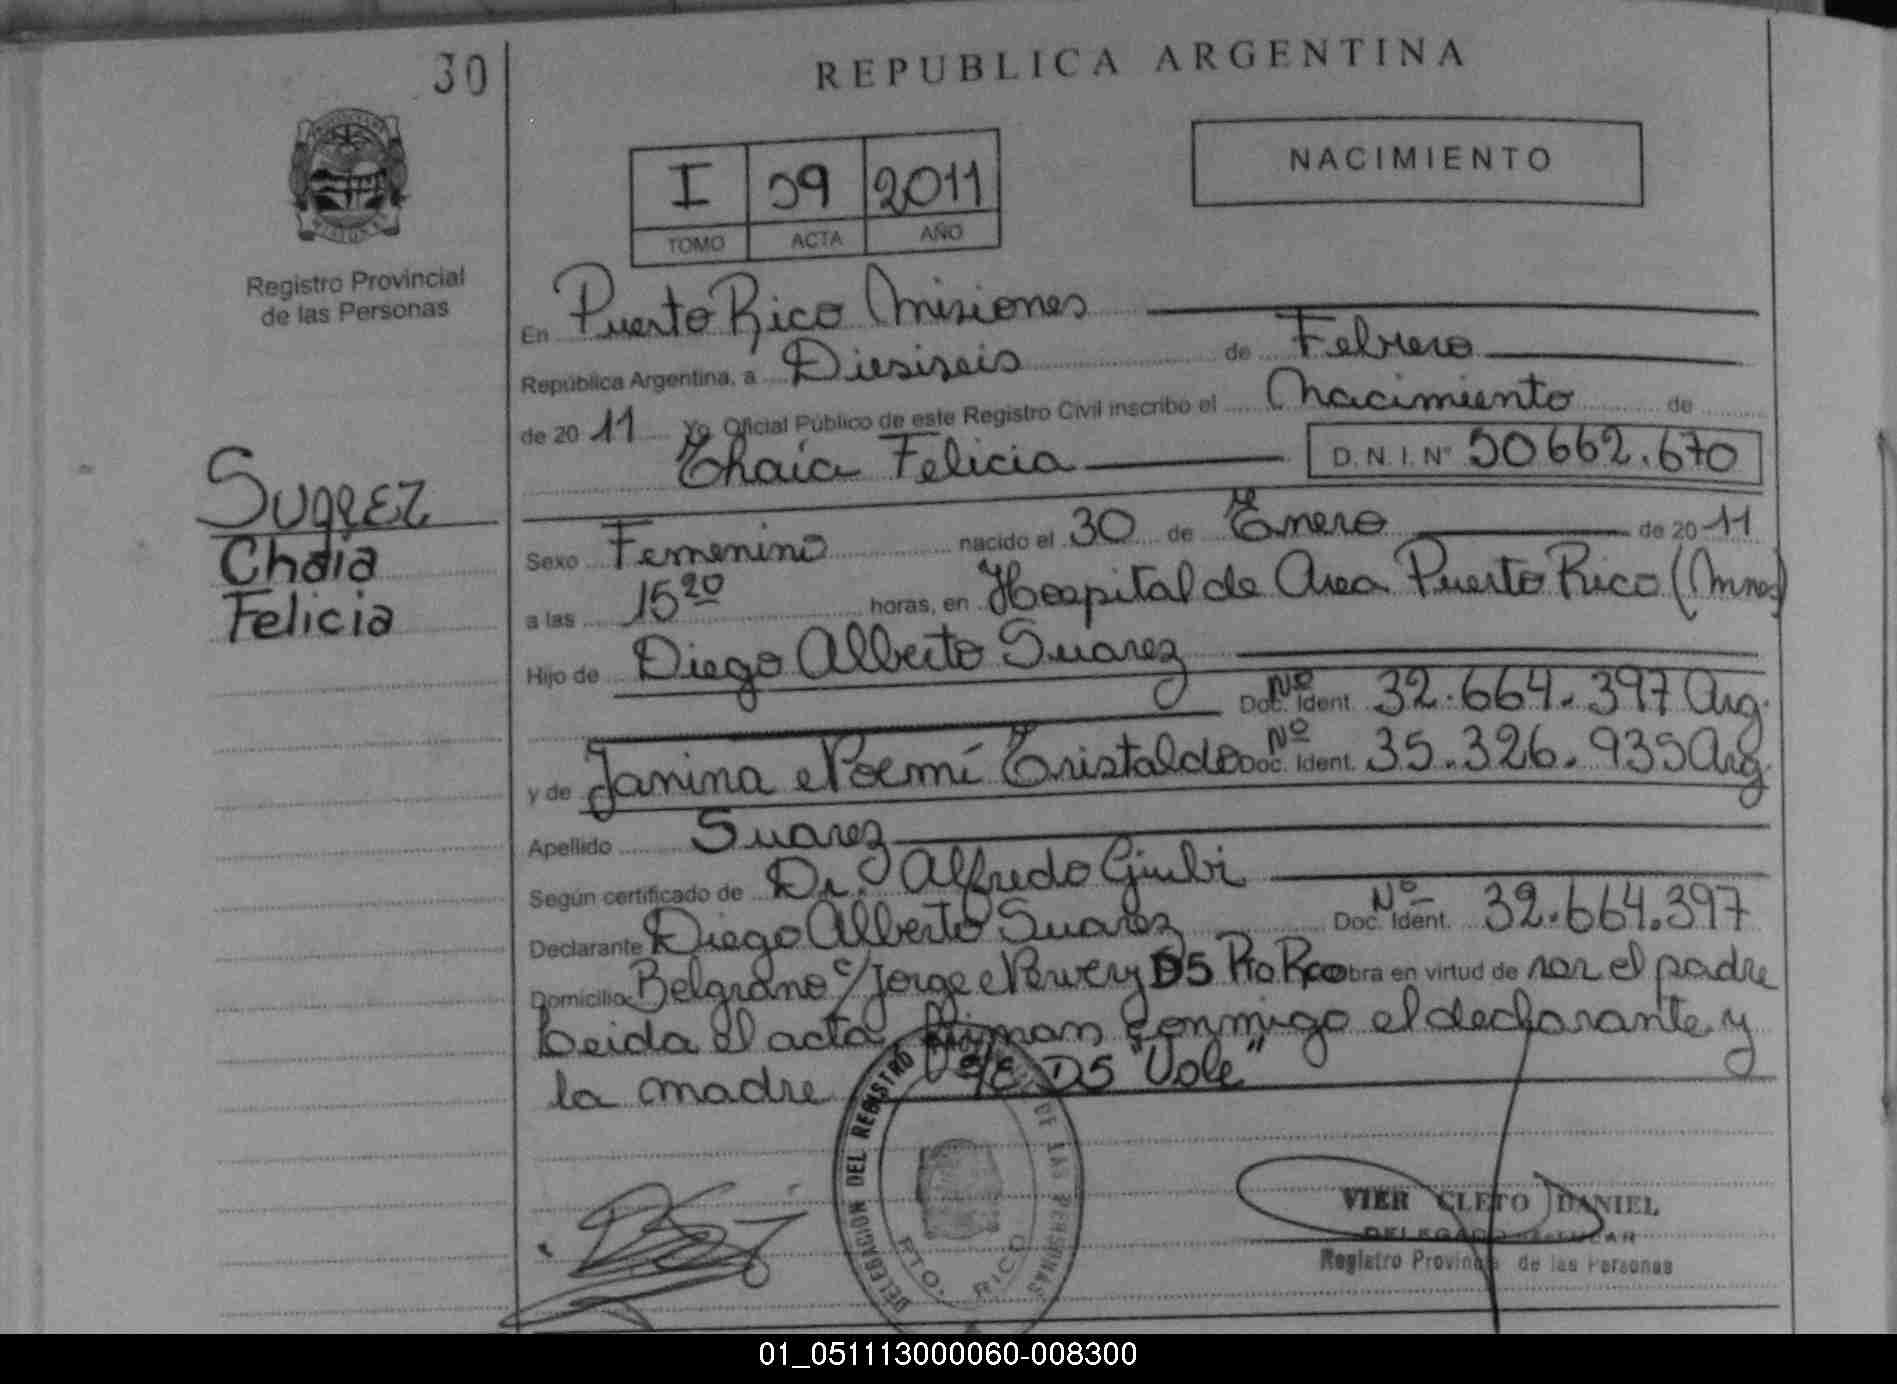 30
REPUBLICA ARGENTINA
NACIMIENTO
I 59 2011
TOMO ACTA AÑO
Registro Provincial
de las Personas
Suarez
Chaia
Felicia
En Puerto Rico Misiones
República Argentina, a Diesiseis de Febrero
de 20 11 Yo Oficial Público de este Registro Civil inscribo el Nacimiento de
Chaia Felicia D.N.I. Nº 50662.670
Sexo Femenino nacido el 30 de Enero de 20 11
a las 15 20 horas, en Hospital de Area Puerto Rico (Mnes)
Hijo de Diego Alberto Suarez
Nº Doc. Ident. 32.664.397 Arg.
y de Janina Noemí Cristaldo Nº Doc. Ident. 35.326.935 Arg.
Apellido Suarez
Según certificado de Dr. Alfredo Giubi
Declarante Diego Alberto Suarez Nº Doc. Ident. 32.664.397
Domicilio Belgrano c/Jorge Newery Pto Rco obra en virtud de ser el padre
Leida el acta, firman conmigo el declarante y
la madre s/E "Vale"
DELEGACION DEL REGISTRO DE LAS PERSONAS
PTO. RICO
VIER CLETO DANIEL
DELEGADO TITULAR
Registro Provincial de las Personas
01_051113000060-008300